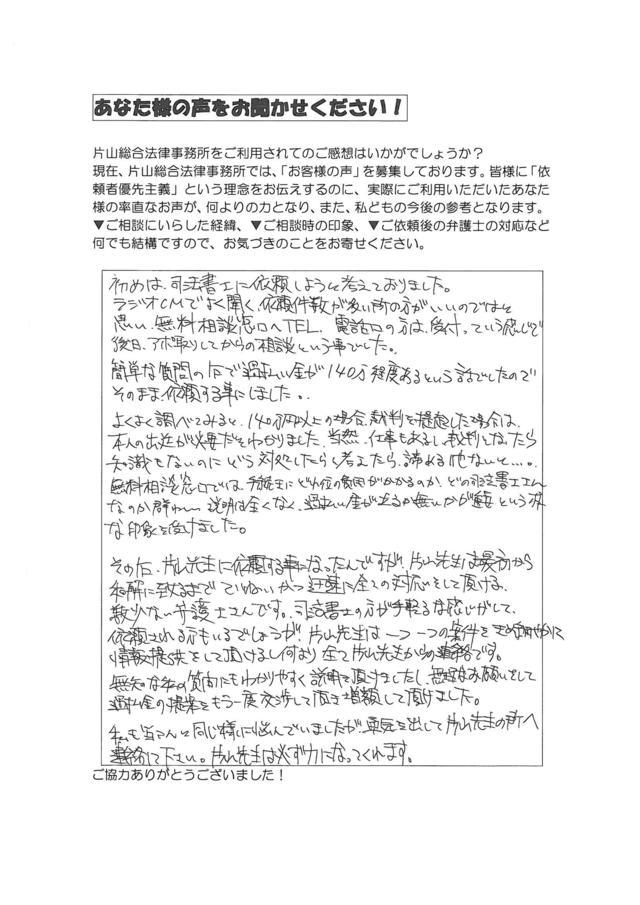 あなた様の声をお聞かせください！
片山総合法律事務所をご利用されてのご感想はいかがでしょうか？
現在、片山総合法律事務所では、「お客様の声」を募集しております。皆様に「依
頼者優先主義」という理念をお伝えするのに、実際にご利用いただいたあなた
様の率直なお声が、何よりの力となり、また、私どもの今後の参考となります。
▼ご相談にいらした経緯、▼ご相談時の印象、▼ご依頼後の弁護士の対応など
何でも結構ですので、お気づきのことをお寄せください。
初めは、司法書士に依頼しようと考えておりました。
ラジオCMでよく聞く、依頼件数が多い所の方がいいのではと
思い、無料相談窓口へTEL、電話口の方は、受付っていう感じで
後日、アポ取りしてからの相談という事でした。
簡単な質問の下で過払い金が140万程度あるという話でしたので
そのまま依頼する事にしました。
よくよく調べてみると、140万円以上の場合、裁判を提起した場合は、
本人の出廷が必要だとわかりました。当然、仕事もあるし、裁判となったら
知識もないのにどう対処したらと考えたら、諦める他ないと…。
無料相談窓口では、手続きにどれ位の費用がかかるのか、どの司法書士さん
なのか 説明は全くなく、過払い金が出るか無いかが重要という様
な印象を受けました。
その後、片山先生に依頼する事になったんですが、片山先生は最初から
和解に致るまで ていねいかつ迅速に全ての対応をして頂ける、
数少ない弁護士さんです。司法書士の方が手軽な感じがして、
依頼される方もいるでしょうが、片山先生は一つ一つの案件を きめ細やかに
情報提供をして頂けるし何より全て片山先生からの連絡です。
無知な私の質問にもわかりやすく説明して頂けましたし、無理なお願いをして
過払金の提案をもう一度交渉して頂き増額して頂けました。
私も皆さんと同じ様に悩んでいましたが、勇気を出して片山先生の所へ
連絡して下さい。片山先生は必ず力になってくれます。
ご協力ありがとうございました！